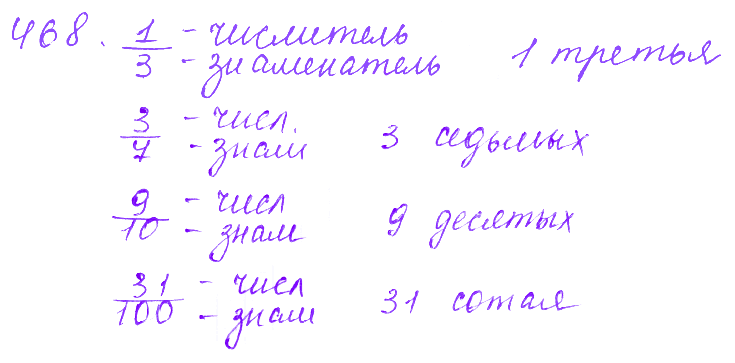 468. 1/3 - числитель - знаменатель 1 третья
3/7 - числ. - знам 3 седьмых
9/10 - числ - знам 9 десятых
31/100 - числ - знам 31 сотая